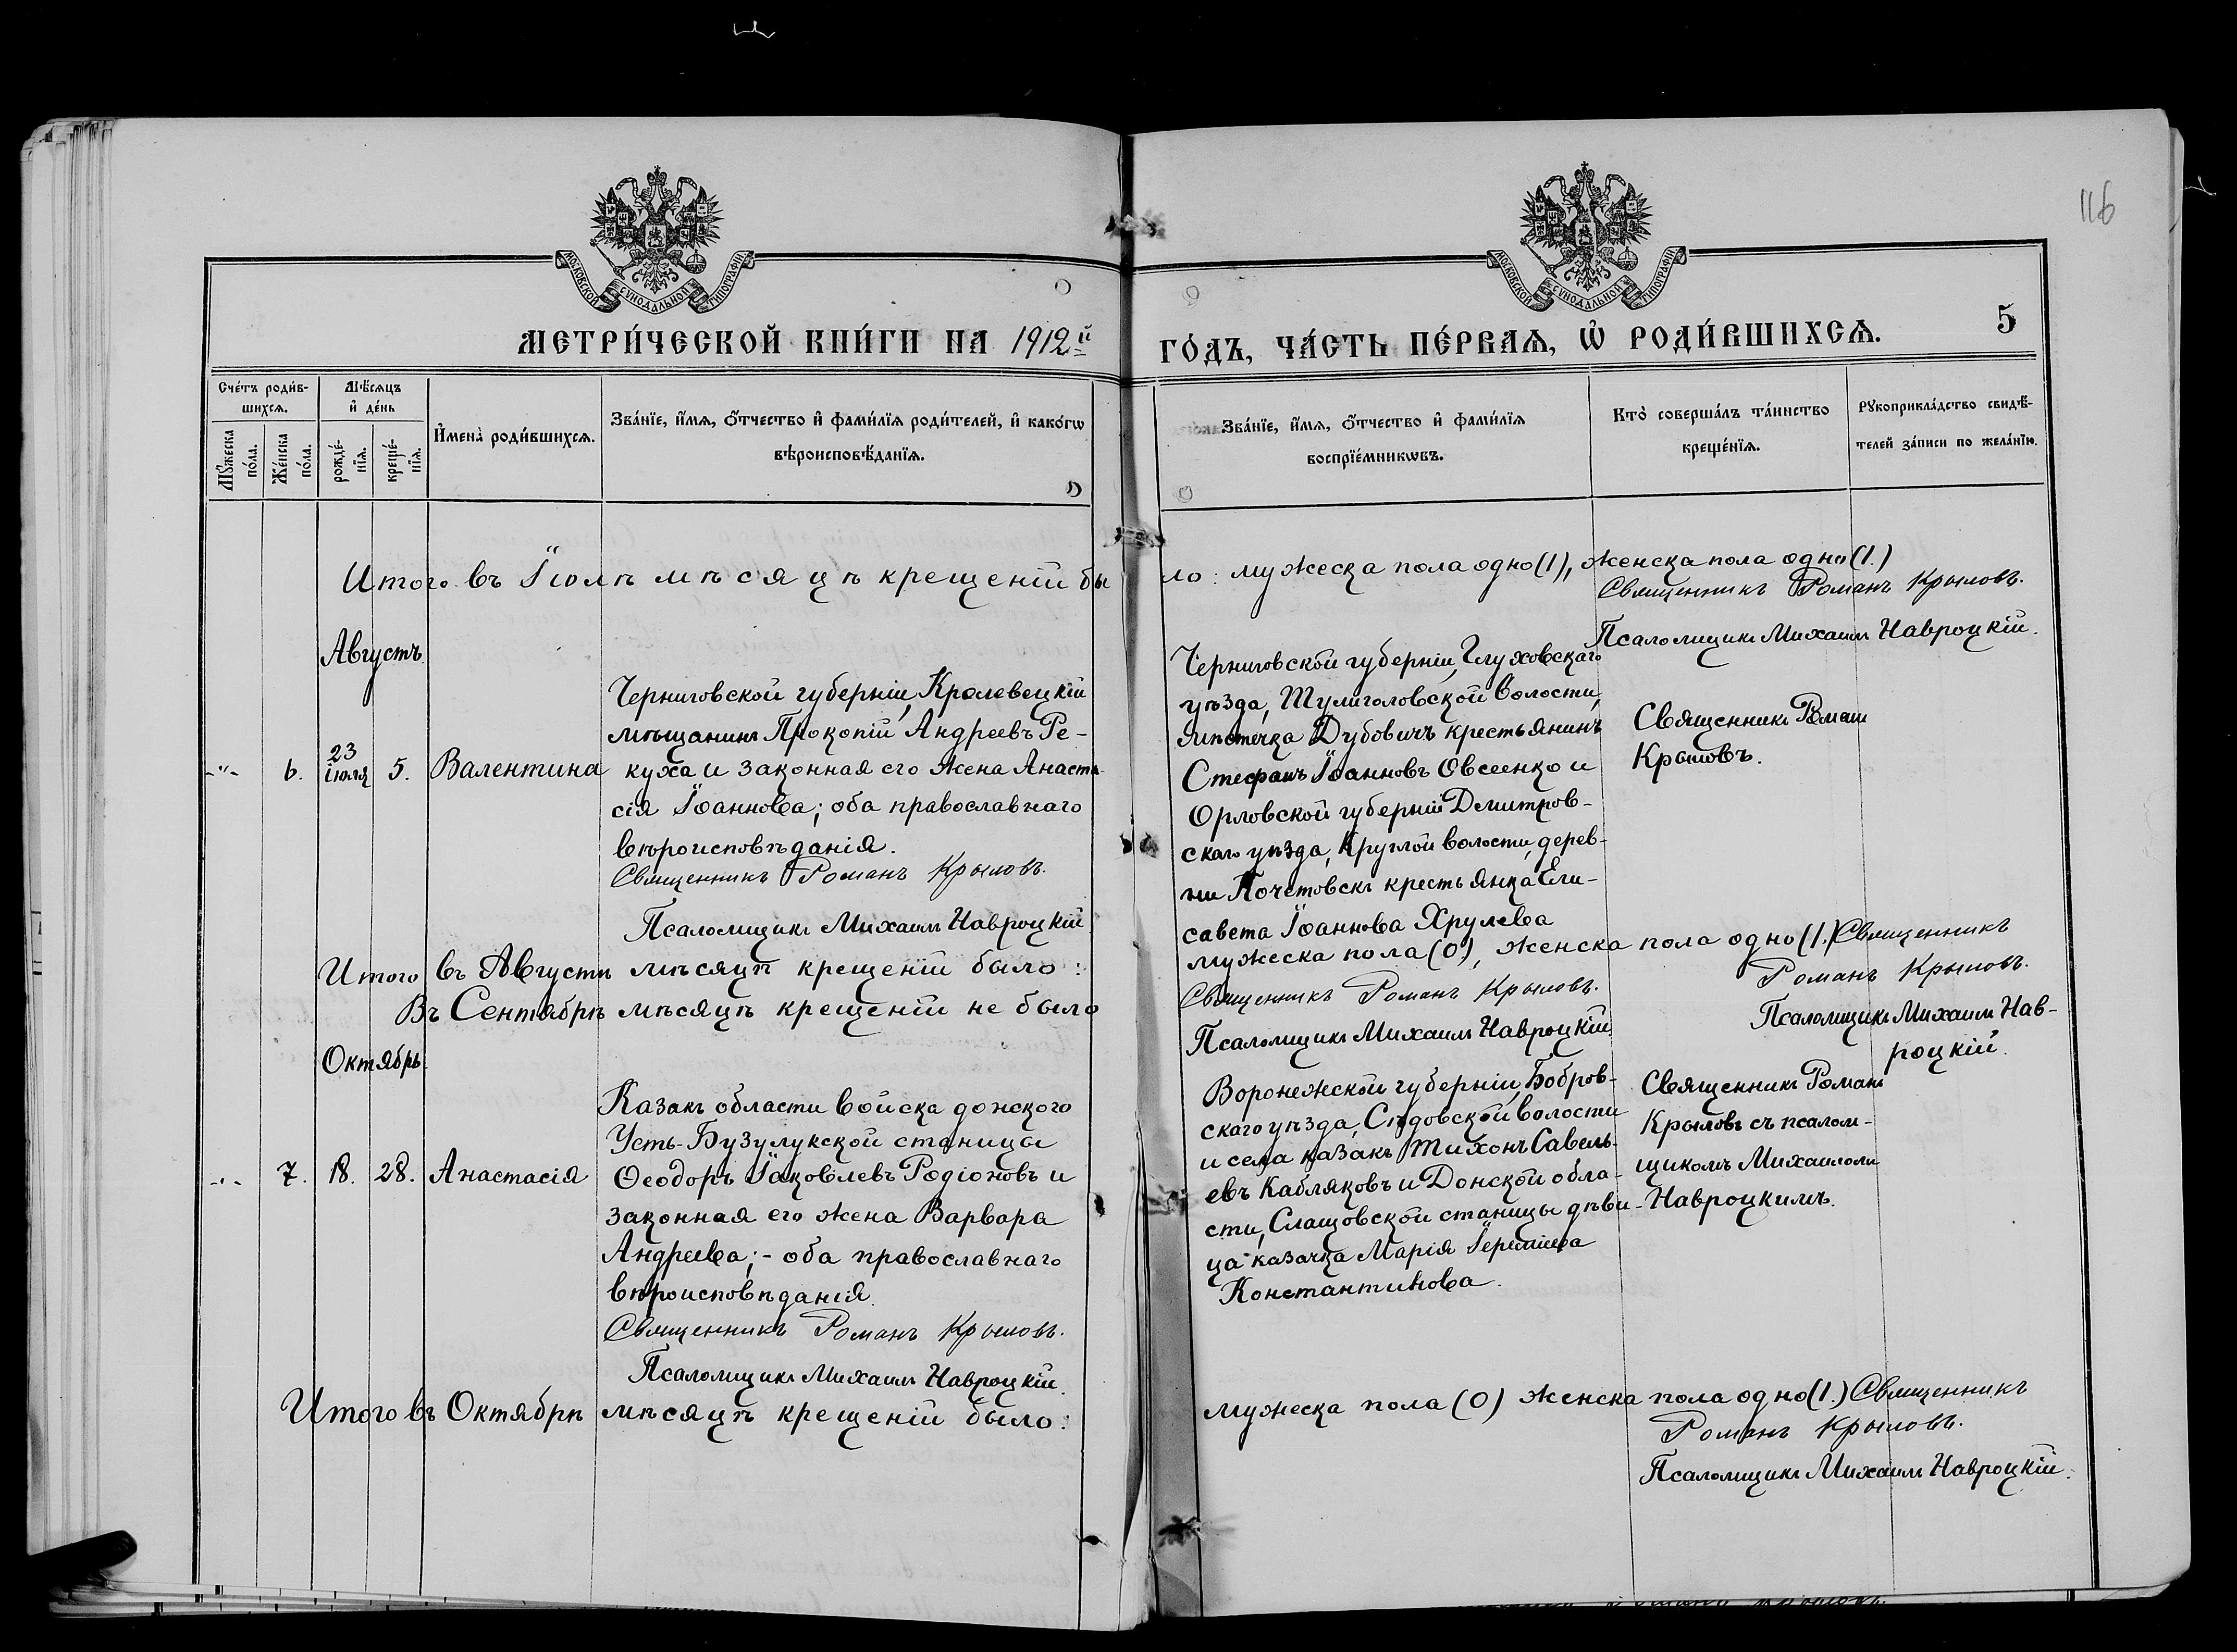 116
МОСКОВСКОЙ СѴНОДАЛЬНОЙ ТИПОГРАФІИ.
МОСКОВСКОЙ СѴНОДАЛЬНОЙ ТИПОГРАФІИ.
МЕТРИ́ЧЕСКОЙ КНИ́ГИ НА 1912й
ГО́ДЪ, ЧА́СТЬ ПЕ́РВАѦ, Ѡ҆ РОДИ́ВШИХСѦ.
5
Сче́тъ роди́в-
шихсѧ.
Мꙋ́жеска
по́ла.
Же́нска
по́ла.
Мѣ́сѧцъ
и҆ де́нь
рожде́-
нїѧ.
креще́-
нїѧ.
И҆мена̀ роди́вшихсѧ.
Зва́нїе, и҆́мѧ, ѻ҆́тчество и҆ фами́лїѧ роди́телей, и҆ како́гѡ
вѣроисповѣ́данїѧ.
Зва́нїе, и҆́мѧ, ѻ҆́тчество и҆ фами́лїѧ
воспрїе́мникѡвъ.
Кто̀ соверша́лъ та́инство
креще́нїѧ.
Рꙋкоприкла́дство свидѣ́-
телей за́писи по жела́нїю.
Итого въ Іюлѣ мѣсяцѣ крещеній бы
ло: мужеска пола одно (1), женска пола одно (1.)
Священникъ Романъ Крыловъ.
Псаломщикъ Михаилъ Навроцкій.
Августъ.
-"-
6.
23
іюля
5.
Валентина
Черниговской губерніи, Кролевецкій
мѣщанинъ Прокопій Андреевъ Ре-
куха и законная его жена Анаста-
сія Іоаннова; оба православнаго
вѣроисповѣданія.
Священникъ Романъ Крыловъ.
Псаломщикъ Михаилъ Навроцкій
Черниговской губерніи, Глуховскаго
уѣзда, Тулиголовской волости,
мѣстечка Дубовичъ крестьянинъ
Стефанъ Іоанновъ Овсеенко и
Орловской губерніи Дмитров-
скаго уѣзда, Круглой волости, дерев-
ни Кочетовскъ крестьянка Ели-
савета Іоаннова Хрулева
Священникъ Романъ
Крыловъ.
Итого въ Августѣ мѣсяцѣ крещеній было:
мужеска пола (0), женска пола одно (1.) Священникъ
Романъ Крыловъ.
Псаломщикъ Михаилъ Нав-
роцкій.
Въ Сентябрѣ мѣсяцѣ крещеній не было
Священникъ Романъ Крыловъ.
Псаломщикъ Михаилъ Навроцкій
Октябрь.
-"-
7.
18.
28.
Анастасія
Казакъ области войска донского
Усть-Бузулукской станицы
Ѳеодоръ Іаковлевъ Родіоновъ и
законная его жена Варвара
Андреева; - оба православнаго
вѣроисповѣданія.
Священникъ Романъ Крыловъ.
Псаломщикъ Михаилъ Навроцкій.
Воронежской губерніи, Бобров-
скаго уѣзда, Сѣдовской волости
и села казакъ Тихонъ Савель-
евъ Кабляковъ и Донской обла-
сти, Слащовской станицы дѣви-
ца казачка Марія Іереміева
Константинова.
Священникъ Романъ
Крыловъ съ псалом-
щикомъ Михаиломъ
Навроцкимъ.
Итого въ Октябрѣ мѣсяцѣ крещеній было:
мужеска пола (0) женска пола одно (1.) Священникъ
Романъ Крыловъ.
Псаломщикъ Михаилъ Навроцкій.